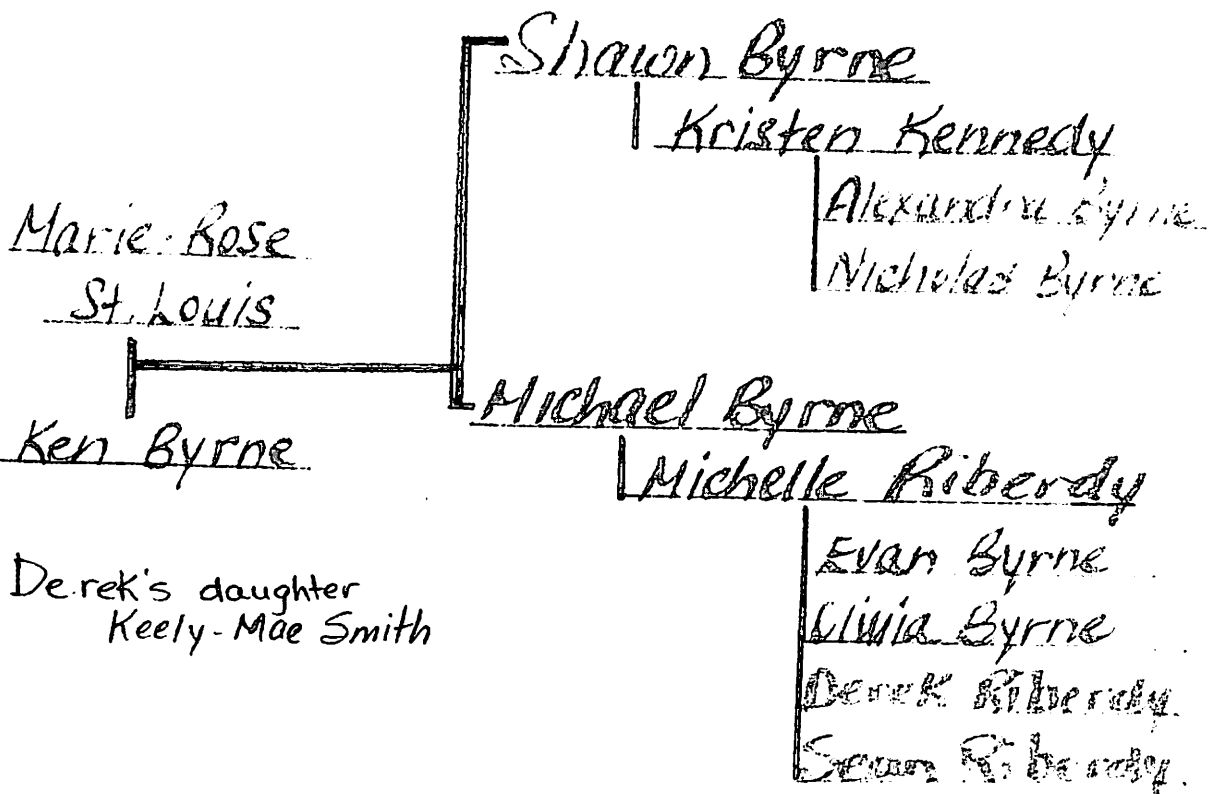 Shawn Byrne
Kristen Kennedy
Alexandra Byrne
Nicholas Byrne
Marie-Rose
St. Louis
Ken Byrne
Michael Byrne
Michelle Riberdy
Evan Byrne
Olivia Byrne
Derek Riberdy
Sean Riberdy
Derek's daughter
Keely-Mae Smith